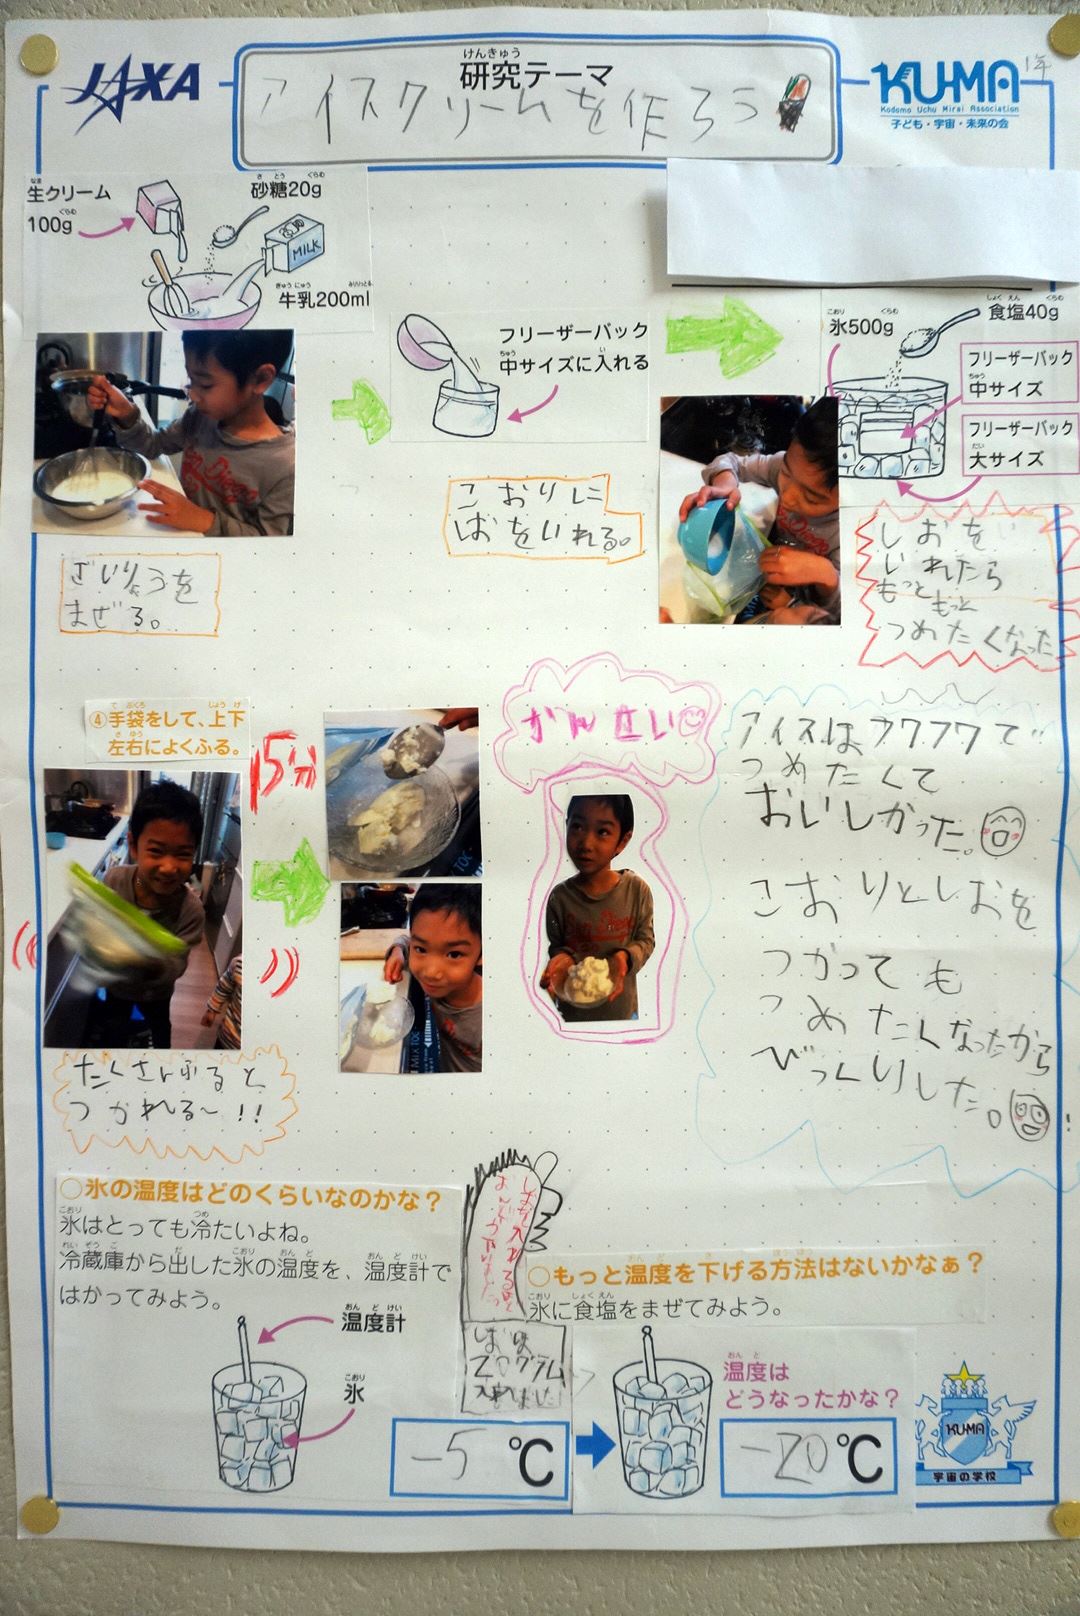 JAXA
けんきゅう
研究テーマ
アイスクリームを作ろう
KU-MA
Kodomo Uchu Mirai Association
子ども・宇宙・未来の会
1年
なま
生クリーム
ぐらむ
100g
さとう ぐらむ
砂糖20g
MILK
ぎゅうにゅう みりりっとる
牛乳200ml
フリーザーバック
ちゅう い
中サイズに入れる
こおり ぐらむ
氷500g
しょくえん ぐらむ
食塩40g
フリーザーバック
ちゅう
中サイズ
フリーザーバック
だい
大サイズ
ざいりょうを
まぜる。
こおりに
しおをいれる。
しおを
いれたら
もっと もっと
つめたくなった
てぶくろ じょうげ
④手袋をして、上下
さゆう
左右によくふる。
15分
たくさんふると
つかれる〜!!
かんせい
アイスはフワフワで
つめたくて
おいしかった。
こおりとしおを
つかっても
つめたくなったから
びっくりした。
○氷の温度はどのくらいなのかな?
こおり つめ
氷はとっても冷たいよね。
れいぞうこ だ こおり おんど おんどけい
冷蔵庫から出した氷の温度を、温度計で
はかってみよう。
おんどけい
温度計
こおり
氷
-5℃
しおを入れると
おんどが下がりました
しおは
20グラム
入れました
○もっと温度を下げる方法はないかなぁ?
こおり しょくえん
氷に食塩をまぜてみよう。
おんど
温度は
どうなったかな?
-20℃
KU-MA
宇宙の学校